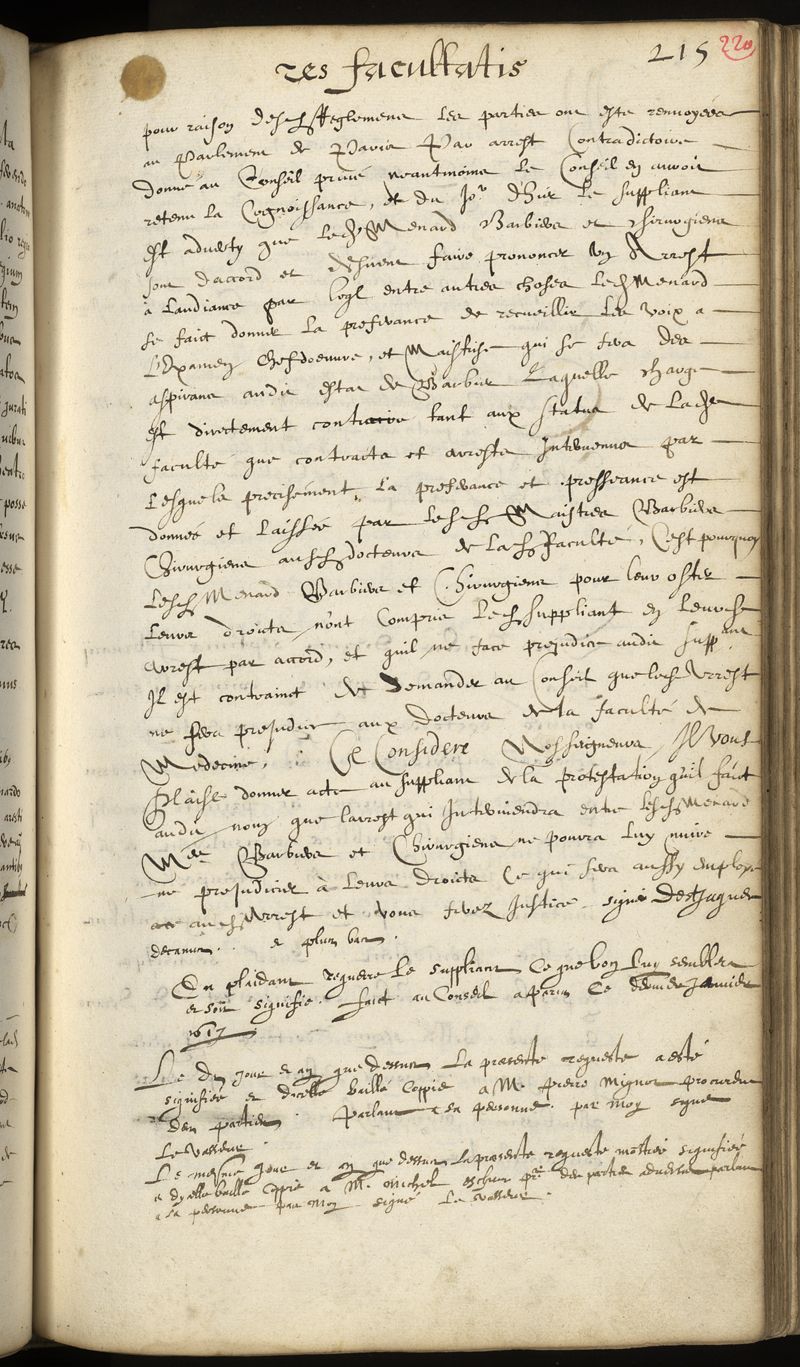 res facultatis
215
220
pour raison desd. Reglemens les parties ont esté renvoyées
au Parlement de Paris Par arrest Contradictoire
donné au Conseil privé neantmoins le Conseil en auroit
retenu la Cognoissance, et du Jor d'huy le suppliant
est adverty que lesd. Menard Barbiers et chirurgiens
sont d'accord et desirent faire prononcer un Arrest
a laudiance par leql entre autres choses led. Menard
se faict donner la preferance de recueillir les voix a
l'Examen Chefdoeuvre, et Maistrise qui se fera des
aspirans audit estat de Barbier Laquelle charge
est directement contraire tant aux statuts de lade
faculté que contracts et arrests Intervenus par
lesquels precisement la preferance et presseance est
donnée et laissée par lesd. Maistres Barbiers
Chirurgiens ausd. docteurs de lad. Faculté, C'est pourquoy
lesd. Menard Barbiers et Chirurgiens pour leur oster
leurs droicts n'ont Compris led. suppliant en leurd.
arrest par accord, et quil ne face prejudice audit suppant
Il est contrainct de Demander au Conseil que led. Arrest
ne fera prejudice aux docteurs de la faculté de
Medecine, Ce Consideré Nosseigneurs, Il Vous
Plaise donner acte au suppliant de la protestation qu'il faict
audit nom que larrest qui Interviendra entre lesd. Menard
Mes Barbiers et Chirurgiens ne pourra luy nuire
ne prejudicier à leurs droicts Ce qui sera aussy employé
aud. Arrest et vous ferez Justice signé Desjaques
decanus. et plus bas.
En plaidant requerre le suppliant Ce que bon luy semblera
et soit signifié. faict au Conseil a paris Ce dernier Janvier
1617
Le dit jour et an que dessus la presente requeste a esté
signifiée et dicelle baillé Coppie a Me pierre mignot procureur
des parties parlant a sa personne par moy signé
Le Vasseur
Le mesme jour et an que dessus la presente requeste monstrée signifiée
et dycelle baillé Coppie a Me Michel pr des parties adverses parlant
a sa personne par moy signé Le Vasseur.